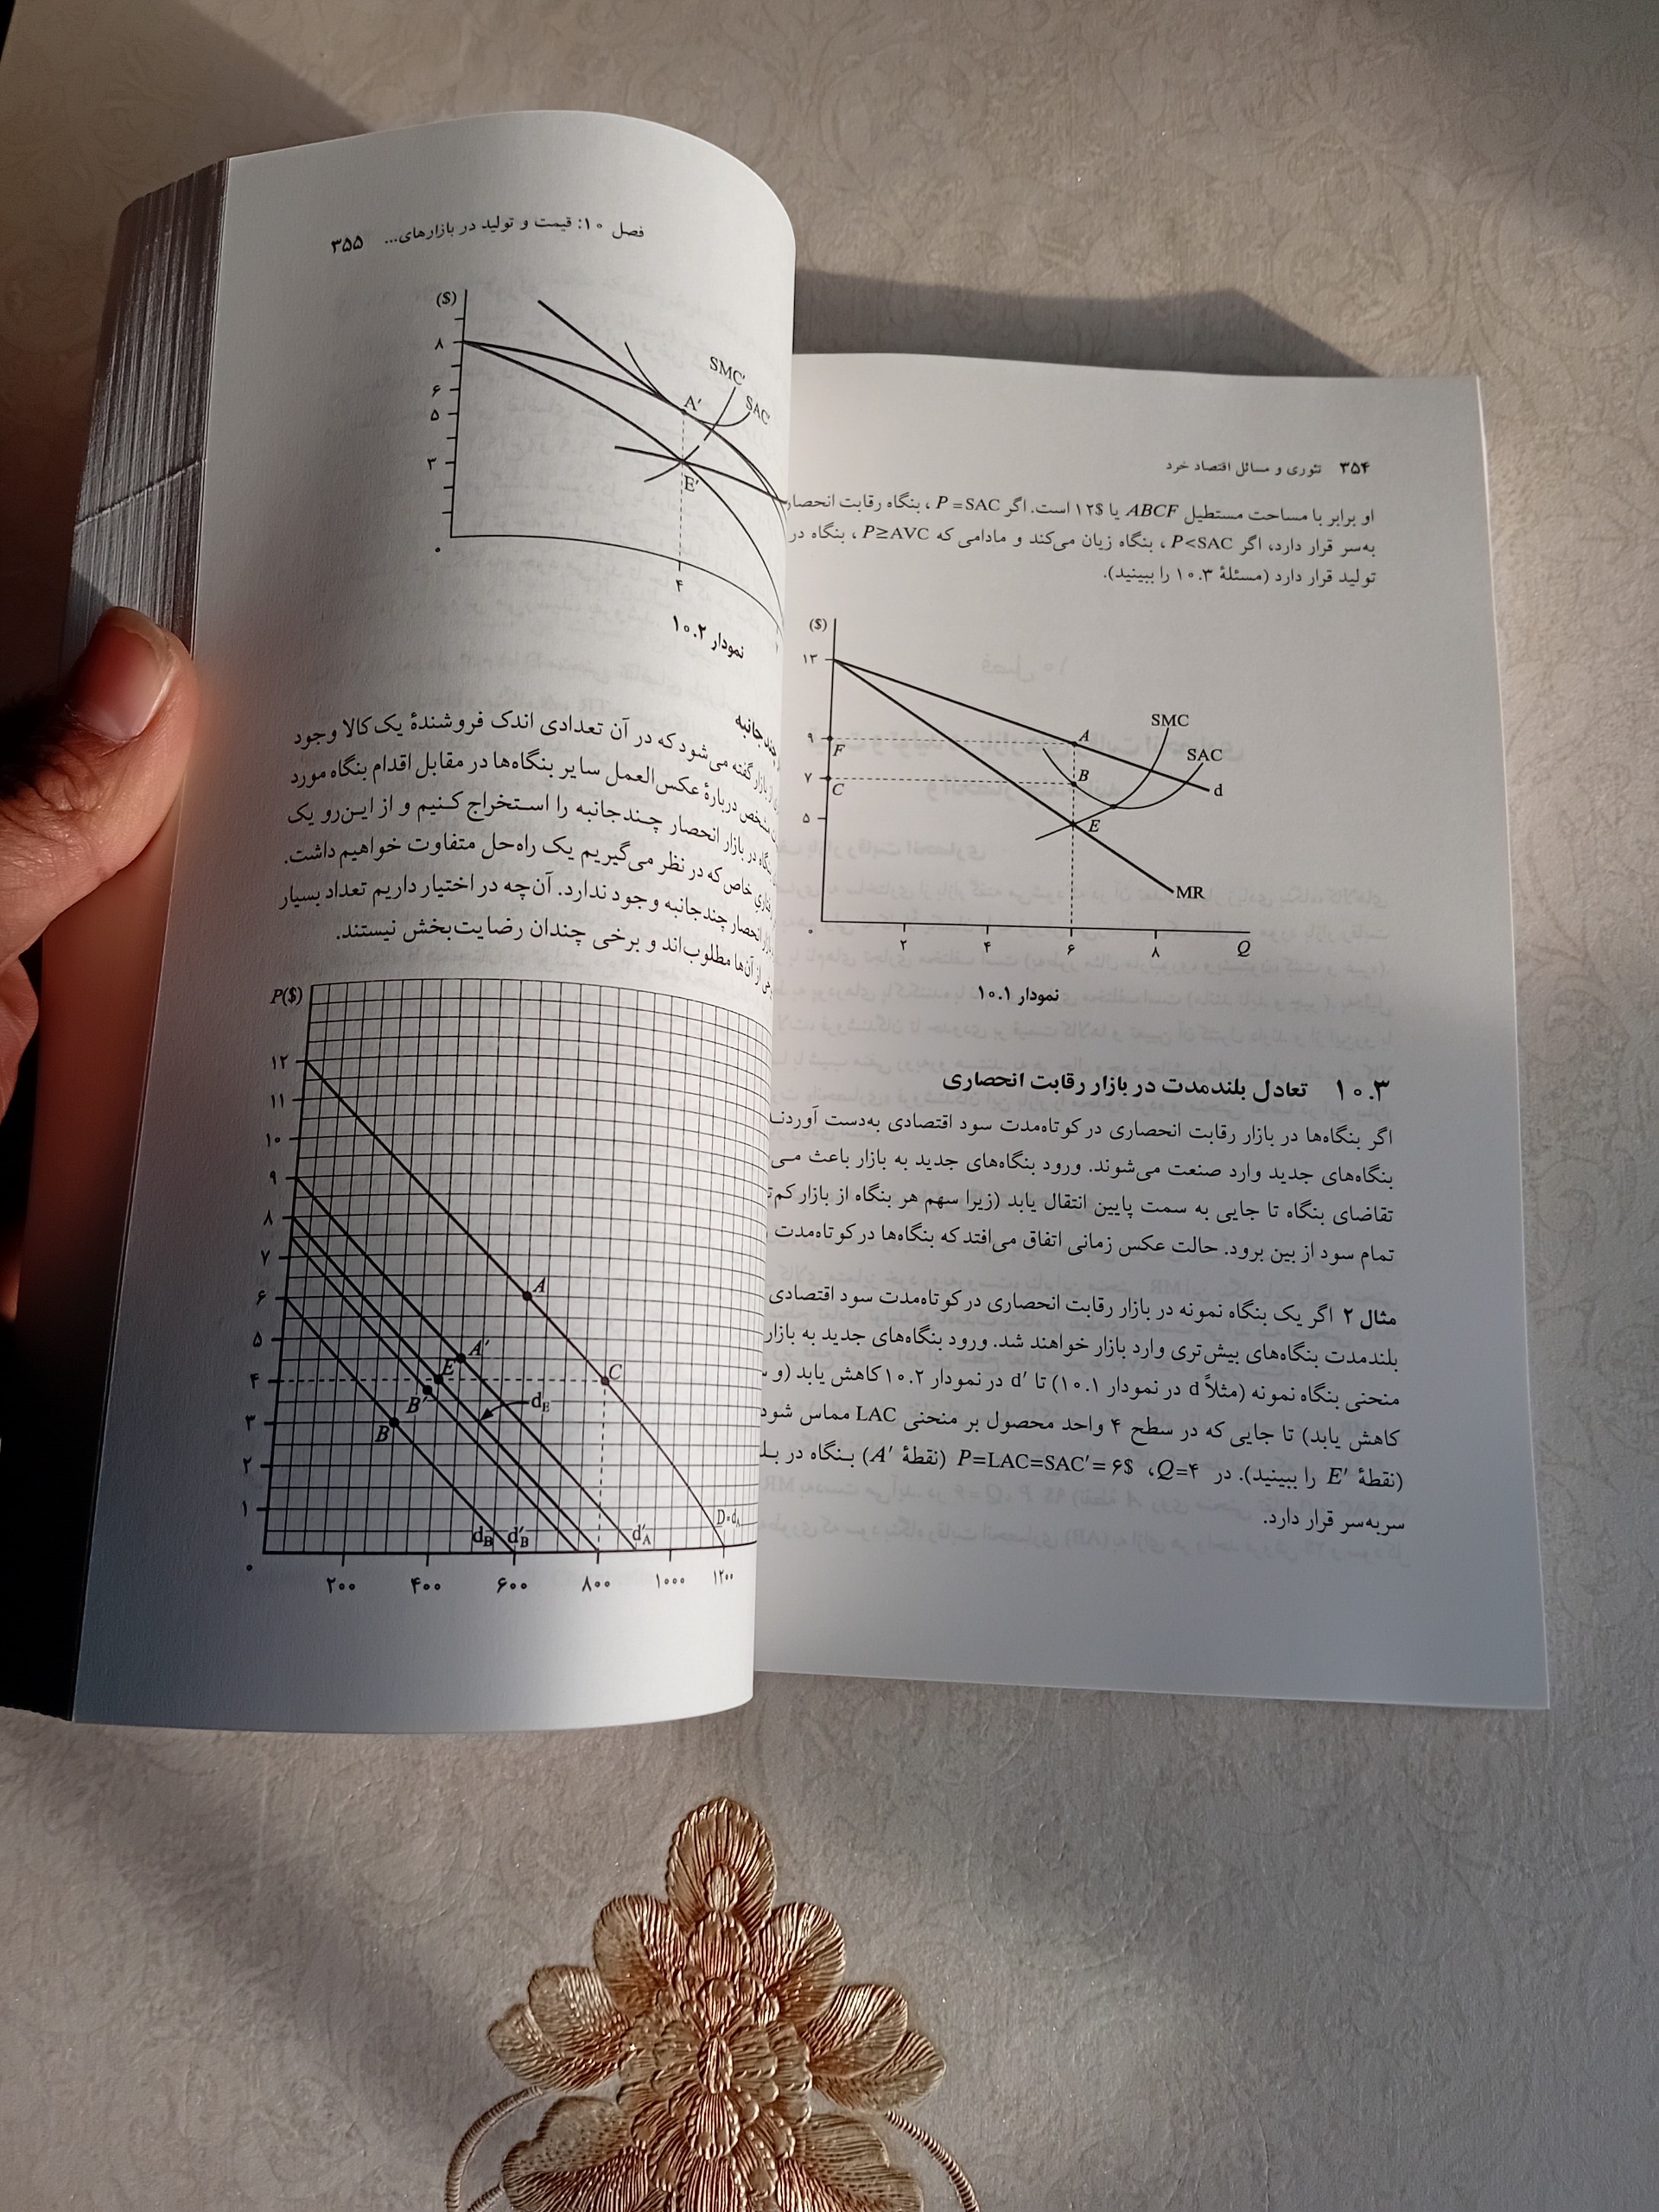 ۳۵۴ تئوری و مسائل اقتصاد خرد
او برابر با مساحت مستطیل ABCF یا ۱۲$ است. اگر P=SAC، بنگاه رقابت انحصار
به‌سر قرار دارد، اگر P<SAC، بنگاه زیان می‌کند و مادامی که P≥AVC، بنگاه در
تولید قرار دارد (مسئلهٔ ۱۰.۳ را ببینید).
($)
۱۳
SMC
SAC
۹
F
A
۷
C
B
d
۵
E
MR
۰
۲
۴
۶
۸
Q
نمودار ۱۰.۱
۱۰.۳ تعادل بلندمدت در بازار رقابت انحصاری
اگر بنگاه‌ها در بازار رقابت انحصاری در کوتاه‌مدت سود اقتصادی به‌دست آوردند
بنگاه‌های جدید وارد صنعت می‌شوند. ورود بنگاه‌های جدید به بازار باعث مـی
تقاضای بنگاه تا جایی به سمت پایین انتقال یابد (زیرا سهم هر بنگاه از بازار کم‌ت
تمام سود از بین برود. حالت عکس زمانی اتفاق می‌افتد که بنگاه‌ها در کوتاه‌مدت
مثال ۲ اگر یک بنگاه نمونه در بازار رقابت انحصاری در کوتاه‌مدت سود اقتصادی
بلندمدت بنگاه‌های بیش‌تری وارد بازار خواهند شد. ورود بنگاه‌های جدید به بازار
منحنی بنگاه نمونه (مثلاً d در نمودار ۱۰.۱) تا d′ در نمودار ۱۰.۲ کاهش یابد (و س
کاهش یابد) تا جایی که در سطح ۴ واحد محصول بر منحنی LAC مماس شود
(نقطهٔ E′ را ببینید). در Q=۴، P=LAC=SAC′=۶$ (نقطهٔ A′) بـنگاه در بـلـ
سربه‌سر قرار دارد.
فصل ۱۰: قیمت و تولید در بازارهای... ۳۵۵
($)
۸
۶
۵
۳
SMC′
SAC′
A′
E′
۰
۴
نمودار ۱۰.۲
چندجانبه
بازار گفته می‌شود که در آن تعدادی اندک فروشندهٔ یک کالا وجود
مشخص دربارهٔ عکس‌العمل سایر بنگاه‌ها در مقابل اقدام بنگاه مورد
بنگاه در بازار انحصار چـندجانبه را اسـتخراج کـنیم و از ایـن‌رو یک
رفتاری خاص که در نظر می‌گیریم یک راه‌حل متفاوت خواهیم داشت.
انحصار چندجانبه وجود ندارد. آن‌چه در اختیار داریم تعداد بسیار
از آن‌ها مطلوب‌اند و برخی چندان رضایت‌بخش نیستند.
P($)
۱۲
۱۱
۱۰
۹
۸
۷
۶
۵
۴
۳
۲
۱
A
A′
E
C
B′
dE
B
dB
d′B
d′A
D=dA
۰
۲۰۰
۴۰۰
۶۰۰
۸۰۰
۱۰۰۰
۱۲۰۰